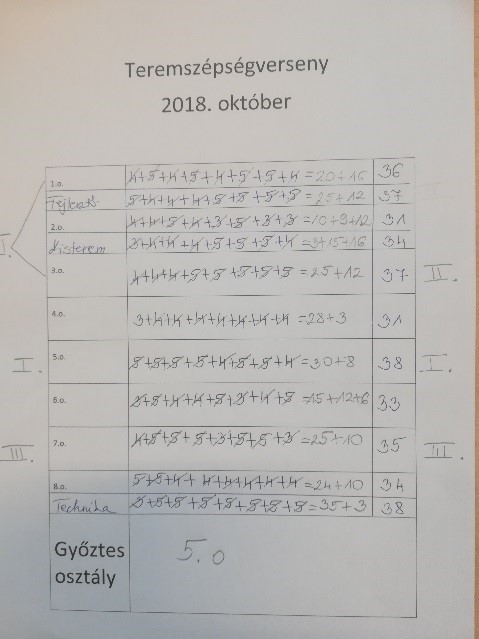 Teremszépségverseny
2018. október
1.o. 4+5+4+5+4+5+5+4=20+16 36
Fejleszt. 5+4+4+4+5+5+5+5=25+12 37
2.o. 4+4+5+4+3+5+3+3=10+9+12 31
Kisterem 3+4+4+4+5+5+5+4=3+15+16 34
II. 3.o. 4+4+4+5+5+5+5+5=25+12 37 II.
4.o. 3+4+4+4+4+4+4+4=28+3 31
I. 5.o. 5+5+5+5+4+5+5+4=30+8 38 I.
6.o. 3+5+4+4+5+3+4+5=15+12+6 33
III. 7.o. 4+5+5+5+3+5+5+3=25+10 35 III.
8.o. 5+5+4+4+4+4+4+4=24+10 34
Technika 3+5+5+5+5+5+5+5=35+3 38
Győztes osztály 5.o